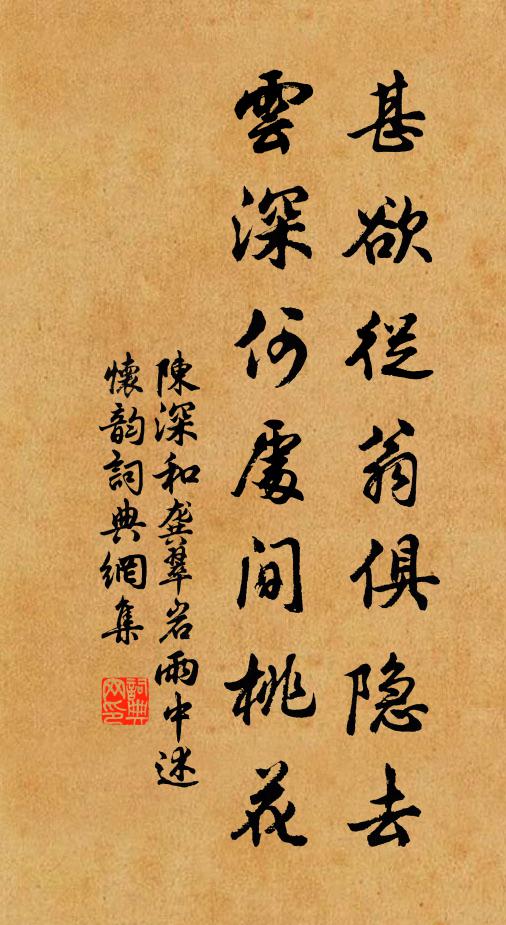 甚欲從翁俱隐去
雲深何處問桃花
陳深和龚翠岩雨中述
懷韵詞典網集
詞典
网印